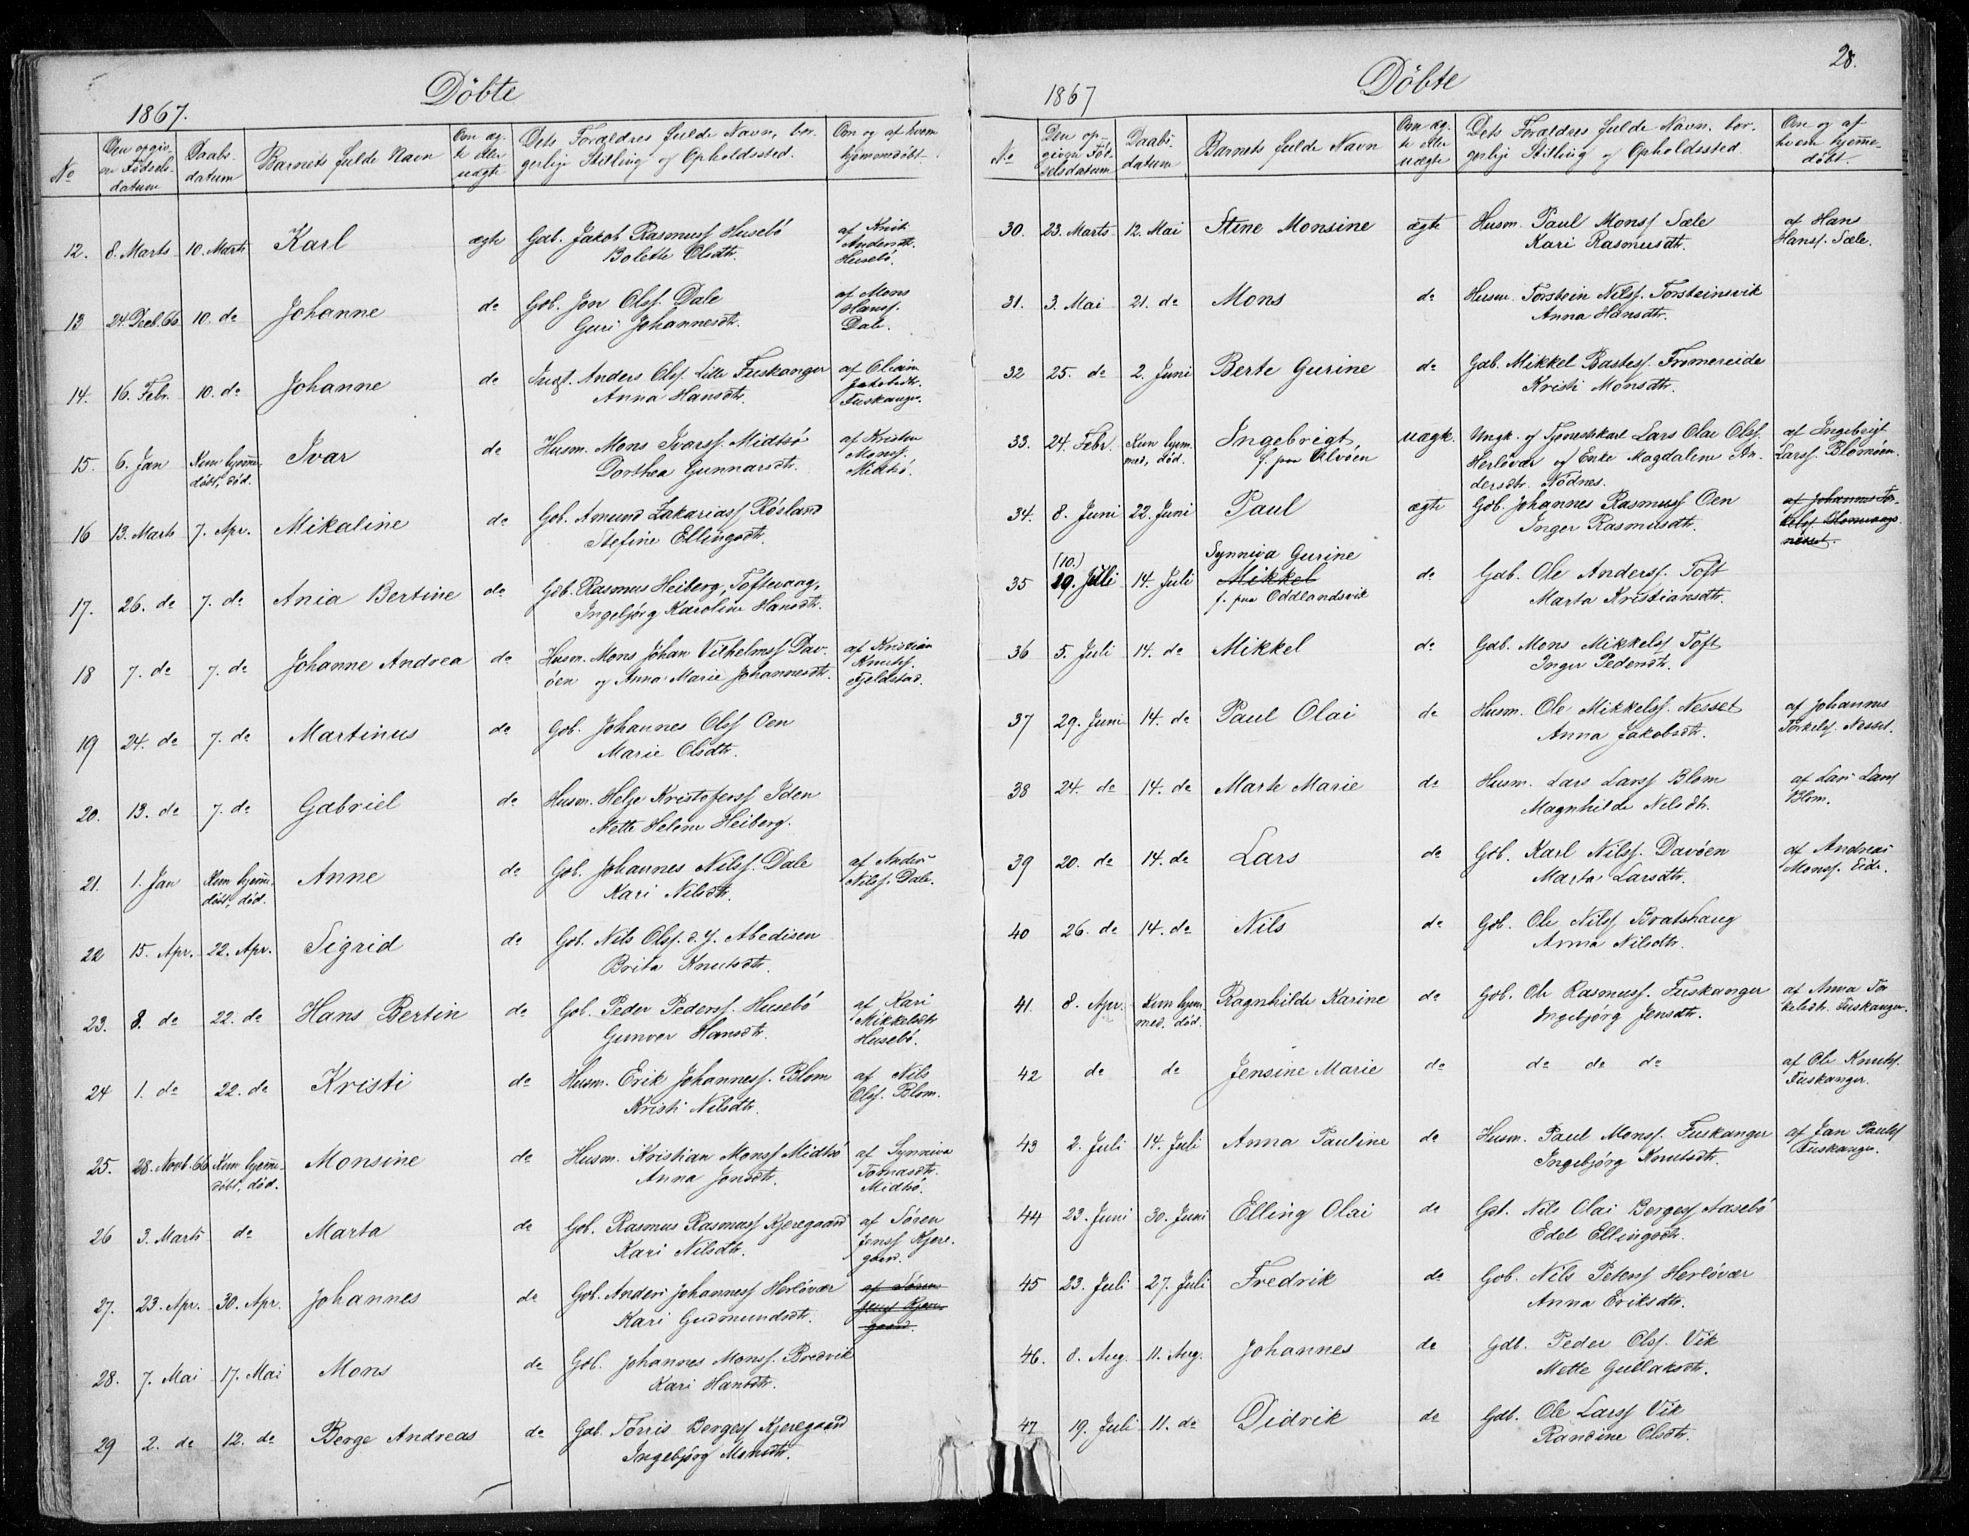 Döbte
1867.
No
Den opgiv-
ne Fødsels-
datum
Daabs-
datum
Barnets fulde Navn
Om æg-
te eller
uægte
Dets Forældres fulde Navn, bor-
gerlige Stilling og Opholdssted.
Om og af hvem
hjemmedöbt.
12. 8. Marts 10. Marts Karl ægte Gdb. Jakob Rasmuss Husebö
Bolethe Olsdtr.
af Kristi
Andersdtr.
Husebö.
13 24. Decb. 66 10. do Johanne do Gdb. Jon Olss. Dale
Guri Johannesdtr.
af Mons
Hanss.
Dale.
14. 16. Febr. 10. do Johanne do Anders Olss. Lille Fuskanger
Anna Hansdtr.
af Oliane
Jakobsdtr.
Fuskanger.
15. 6. Jan Kun hjemme-
döbt, död.
Ivar do Husm. Mons Ivarss. Midtsö
Dorthea Gunnarsdtr.
af Kristen
Monss.
Midtsö.
16 13. Marts 7. Apr. Mikaline do Gdb. Amund Zakariass Røsland
Stefine Ellingsdtr.
17. 26. do 7. do Ania Bertine do Gdb. Rasmus Heiberg, Toftevaag,
Ingebjørg Karoline Hansdtr.
18 7. do 7. do Johanne Andrea do Husm. Mons Johan Vilhelmss Dav-
öen og Anna Marie Johannesdtr.
af Kristian
Knutss.
Fjeldstad.
19 24. do 7. do Martinus do Gdb. Johannes Olss Oen
Marie Olsdtr.
20. 13. do 7. do Gabriel do Husm. Helje Kristoferss Iden
Mette Helene Heiberg.
21. 1. Jan Kun hjemme-
döbt, död.
Anne do Gdb. Johannes Nilss. Dale
Kari Nilsdtr.
af Anders
Nilss. Dale.
22 15. Apr. 22. Apr. Sigrid do Gdb. Nils Olss. d. y. Abedisen
Brita Knutsdtr.
23. 8. do 22. do Hans Bertin do Gdb. Peder Pederss. Husebö
Gunvor Hansdtr.
af Kari
Mikkelsdtr
Husebö.
24 1. do 22. do Kristi do Husm. Erik Johanness. Blom
Kristi Nilsdtr.
af Nils
Olss. Blom.
25. 28. Novb. 66 Kun hjemme-
döbt, död.
Monsine do Husm. Kristian Monss Midtsö
Anna Jonsdtr.
af Synniva
Tomasdtr.
Midtsö.
26 3. Marts do Marta do Gdb. Rasmus Rasmuss Kjeregaard
Kari Nilsdtr.
af Søren
Jenss Kjere-
gaard.
27. 23. Apr. 30. Apr. Johannes do Gdb. Anders Johanness Herlövær
Kari Gudmundsdtr.
af Søren
Jenss Kjere-
gaard.
28. 7. Mai 17. Mai Mons do Gdb. Johannes Monss. Bredvik
Kari Hansdtr.
29 2. do 12. do Berge Andreas do Gdb. Torris Bergess Kjeregaard
Ingebjørg Monsdtr.
28.
Döbte
1867
No
Den op-
givne Föd-
selsdatum
Daabs-
datum
Barnets fulde Navn
Om æg-
te eller
uægte
Dets Forælders fulde Navn, bor-
gerlige Stilling og Opholdssted.
Om og af
hvem hjemme-
döbt.
30. 23. Marts 12. Mai Stine Monsine ægte Husm. Paul Monss Sæle
Kari Rasmusdtr.
af Hans
Hanss. Sæle.
31. 3. Mai 21. do Mons do Husm. Torstein Nilss. Torsteinsvik
Anna Hansdtr.
32 25. do 2. Juni Berte Gurine do Gdb. Mikkel Bastess. Frommereide
Kristi Monsdtr.
33. 24. Febr. Kun hjem-
med, död.
Ingebrigt,
f. paa Alvöen
uægte Ungk. og Tjenestekarl Lars Olai Olss.
Herlövær og Enke Magdalene An-
dersdtr. Nödnes.
af Ingebrigt
Larss. Blomöen.
34. 8. Juni 22. Juni Paul ægte Gdb. Johannes Rasmuss Oen
Inger Rasmusdtr.
af Johannes Tor-
kelss Blomvangs-
nesset.
35 (10.)
29. Juli 14. Juli Synniva Gurine
Mikkel
f. paa Oddlandsvik
do Gdb. Ole Anderss. Toft
Marta Kristiansdtr.
36 5. Juli 14. do Mikkel do Gdb. Mons Mikkelss Toft
Inger Pedersdtr.
37 29. Juni 14. do Paul Olai do Husm. Ole Mikkelss. Nesset
Anna Jakobsdtr.
af Johannes
Torkelss. Nesset.
38 24. do 14. do Marte Marie do Husm. Lars Larss Blom
Magnhilde Nilsdtr.
af Lars Larss
Blom.
39 20. do 14. do Lars do Gdb. Karl Nilss. Davöen
Marta Larsdtr.
af Andreas
Monss. Eide.
40 26. do 14. do Nils do Gdb. Ole Nilss Bratshaug
Anna Nilsdtr.
41. 8. Apr. Kun hjem-
med. död.
Ragnhilde Karine do Gdb. Ole Rasmuss. Fuskanger
Ingebjørg Jensdtr.
af Anna Tor-
kelsdtr. Fuskanger.
42 do do Jensine Marie do do do do
af Ole Knutss.
Fuskanger.
43 2. Juli 14. Juli Anna Pauline do Husm. Paul Monss. Fuskanger
Ingebjørg Knutsdtr.
af Jan Paulss
Fuskanger.
44 23. Juni 30. Juni Elling Olai do Gdb. Nils Olai Bergess Aasebö
Edel Ellingsdtr.
45 23. Juli 27. Juli Fredrik do Gdb. Nils Peterss Herlövær
Anna Eriksdtr.
46. 8. Aug. 11. Aug. Johannes do Gdb. Peder Olss. Vik
Mette Gullaksdtr.
47 19. Juli 11. do Didrik do Gdb. Ole Larss Vik
Randine Olsdtr.